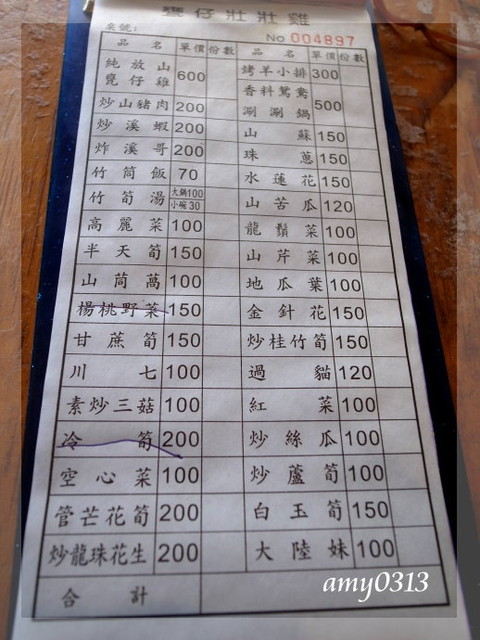 甕仔壯壯雞
桌號:
No 004897
品名 單價 份數 品名 單價 份數
純放山甕仔雞 600 烤羊小排 300
炒山豬肉 200 香料鴛鴦涮涮鍋 500
炒溪蝦 200 山蘇 150
炸溪哥 200 珠蔥 150
竹筒飯 70 水蓮花 150
竹筍湯 大鍋100 小碗30 山苦瓜 120
高麗菜 100 龍鬚菜 100
半天筍 150 山芹菜 100
山茼萵 100 地瓜葉 100
楊桃野菜 150 金針花 150
甘蔗筍 150 炒桂竹筍 150
川七 100 過貓 120
素炒三菇 100 紅菜 100
冷筍 200 炒絲瓜 100
空心菜 100 炒蘆筍 100
管芒花筍 200 白玉筍 150
炒龍珠花生 200 大陸妹 100
合計
amy0313